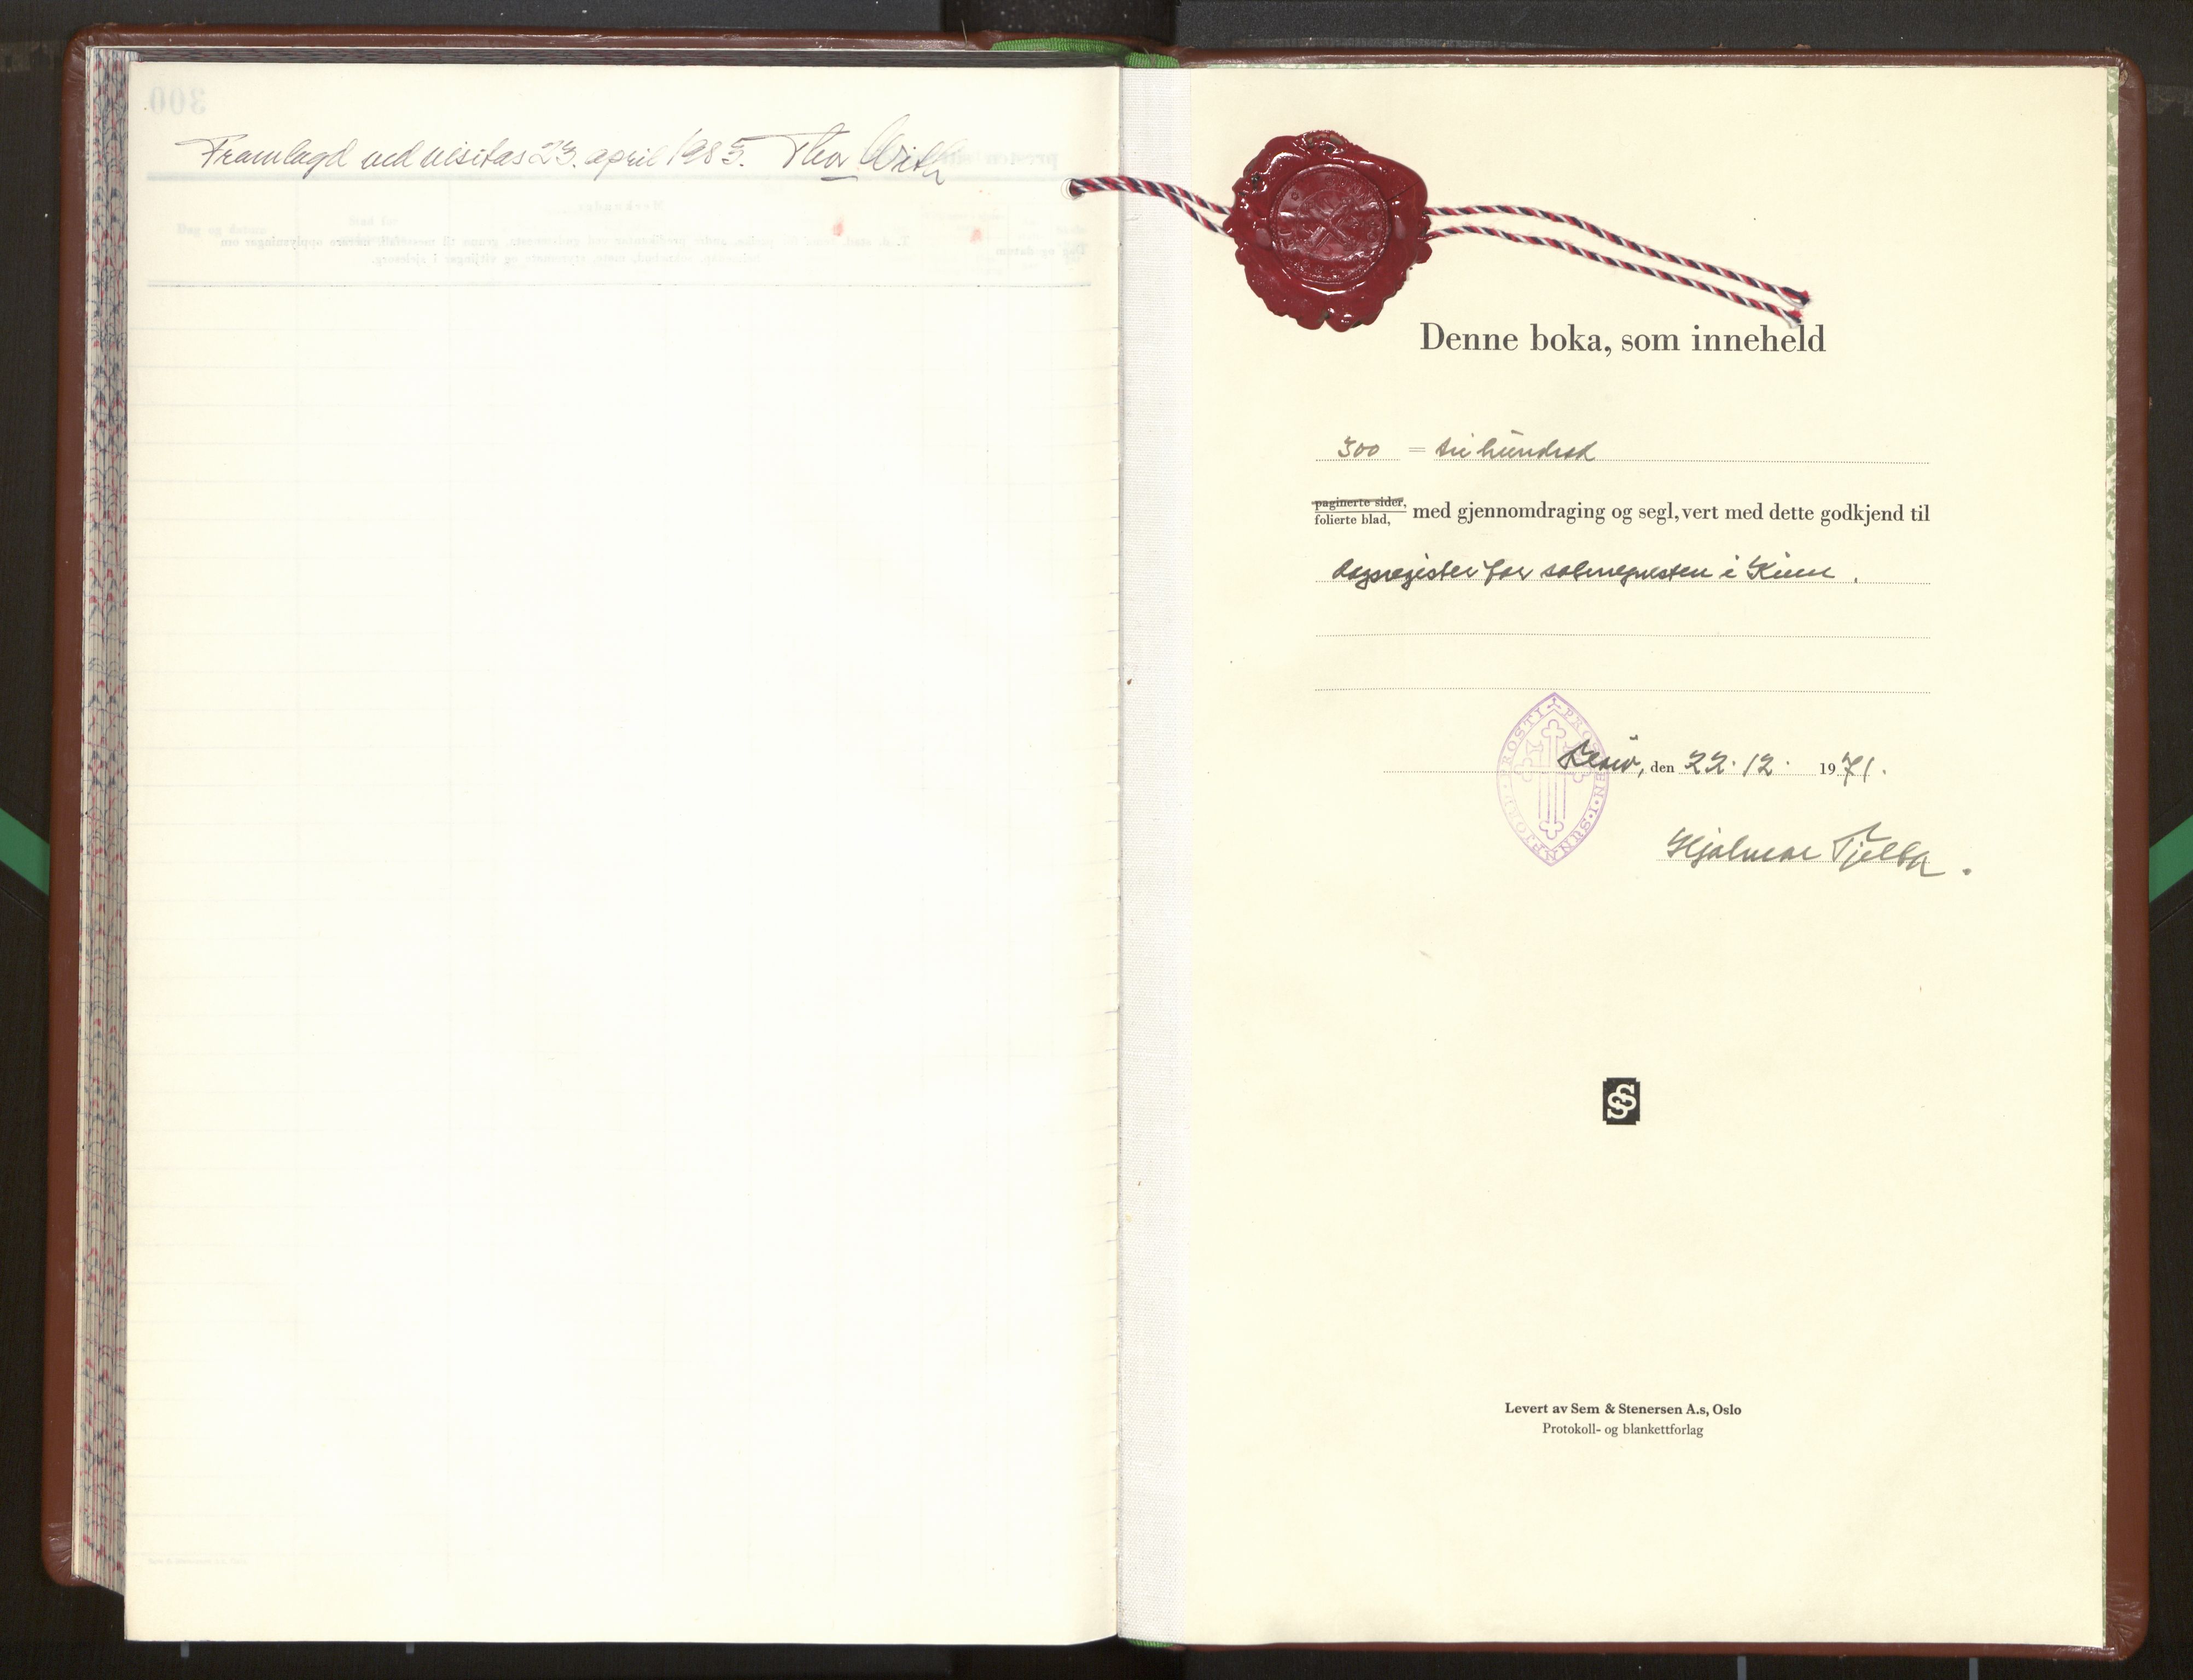 Framlagd ved visitas 23. april 1985. Thor With
Denne boka, som inneheld
300 = tri hundrad
paginerte sider,
folierte blad, med gjennomdraging og segl, vert med dette godkjend til
dagsregister for soknepresten i Kinn.
Florø, den 22.12. 1971.
Hjalmar
PROSTEN I SUNNFJORD PROSTI
SS
Levert av Sem & Stenersen A.s, Oslo
Protokoll- og blankettforlag